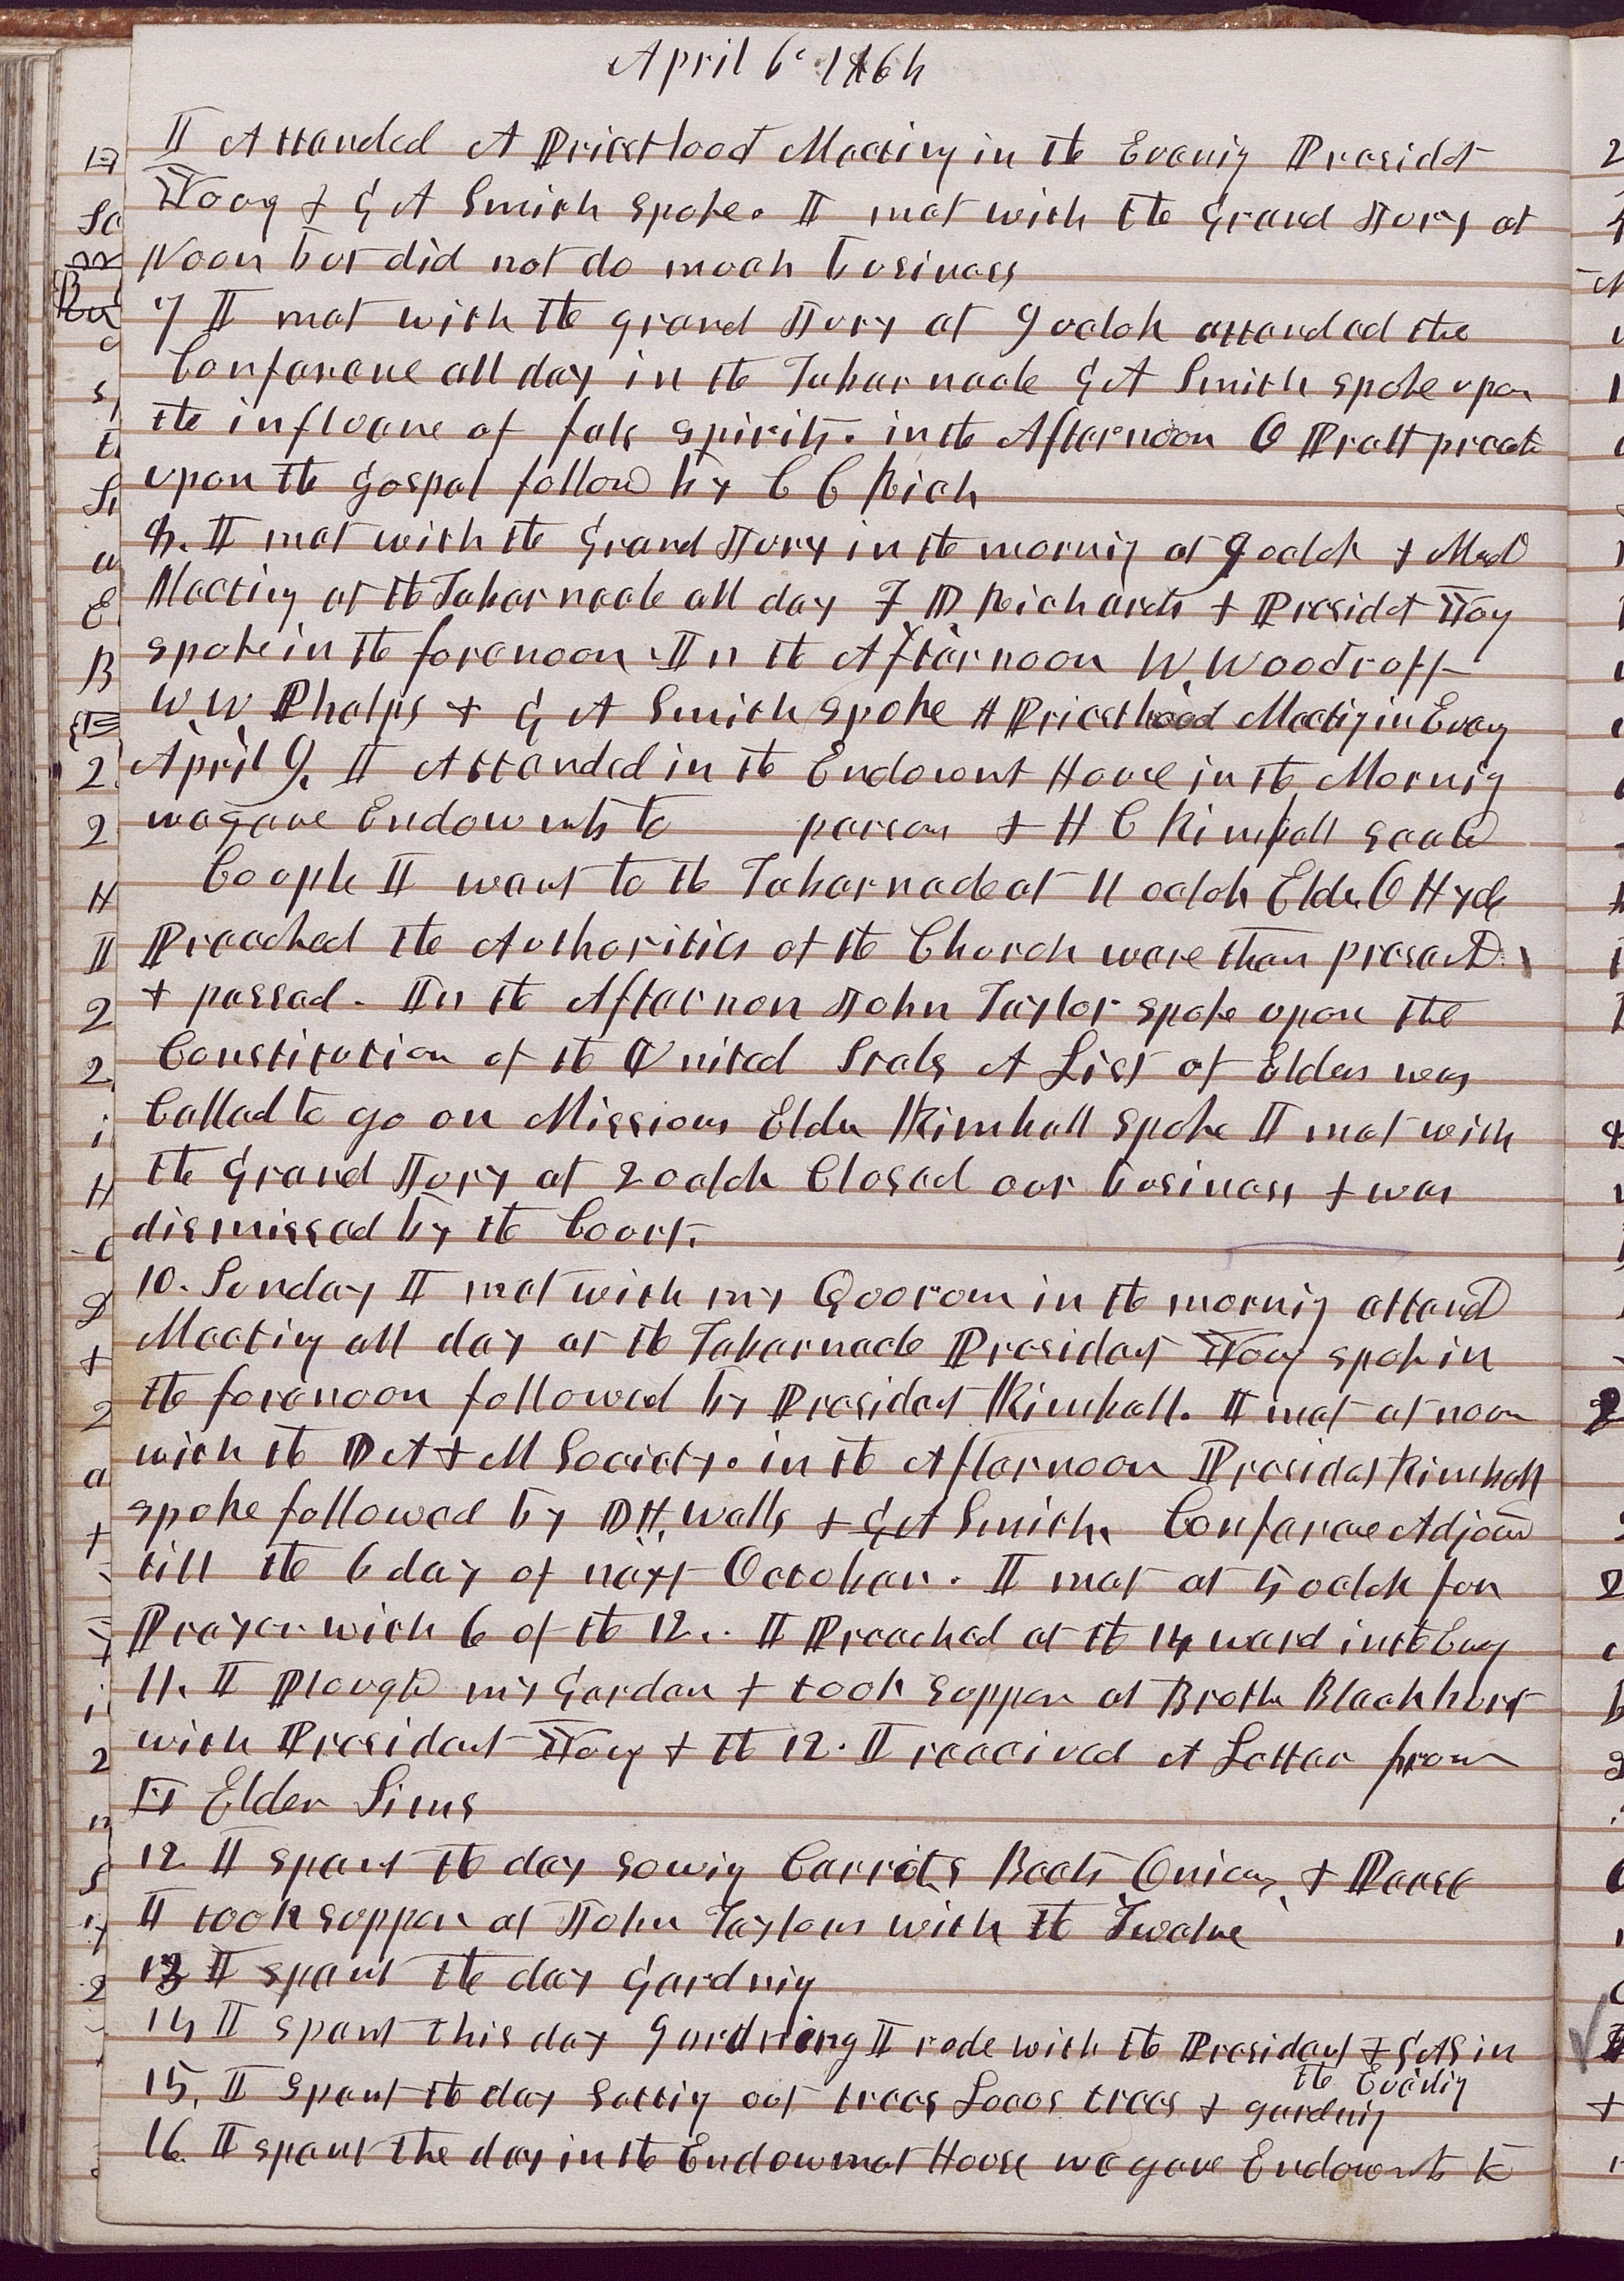 April 6th 1864
I Attended A Priesthood Meeting in the Evenig Presidet
Young & G A Smith spoke. I met with the Grand Jury at
Noon but did not do much business
7 I met with the grand Jury at 9 oclok attended the
Conference all day in the Tabernacle G A Smith spoke upon
the influene of fals spirits. in the Afternoon O Pratt preach
upon the gospel follow by C C Rich
8. I met with the Grand Jury in the mornig at 9 oclok & Attd
Meeting at the Tabernacle all day F D Richards & Presidet Young
spoke in the forenoon. In the Afternoon W. Woodruff
W. W. Phelps & G A Smith spoke A Priesthood Meetig in Eveng
April 9. I Attended in the Endowmt House in the Mornig
we gave Endowmts to     persons & H C Kimball seald
Couple I went to the Tabernacle at 11 oclok Elder O Hyde
Preached the Authorities of the Church were then presentd
& passed. In the Afternon John Taylor spoke upon the
Constitution of the United Stats A List of Elders was
Called to go on Missions Elder Kimball spoke I met with
the Grand Jury at 2 oclok Closed our business & was
dismissed by the Court.
10. Sunday I met with my Quorum in the mornig attend
Meeting all day at the Tabernacle President Young spok in
the forenoon followed by President Kimball. I met at noon
with the D A & M Society. in the Afternoon President Kimball
spoke followed by D H. Wells & G A Smith. Conferene Adjournd
till the 6 day of next October. I met at 5 oclok for
Prayer with 6 of the 12. I Preached at the 14 ward in the Eveng
11. I Ploughd my Garden & took supper at Brothr Blackhurst
with President Young & the 12. I received A Letter from
Elder Sims
12 I spent the day sowig Carrots Beets Onions & Peese
I took supper at John Taylors with the Twelve
13 I spent the day Gardnig
14 I spent this day Gardning I rode with the President & GAS in
the Evenig
15. I spent the day settig out trees Locos trees & gardnig
16. I spent the day in the Endowmet House we gave Endowmts to